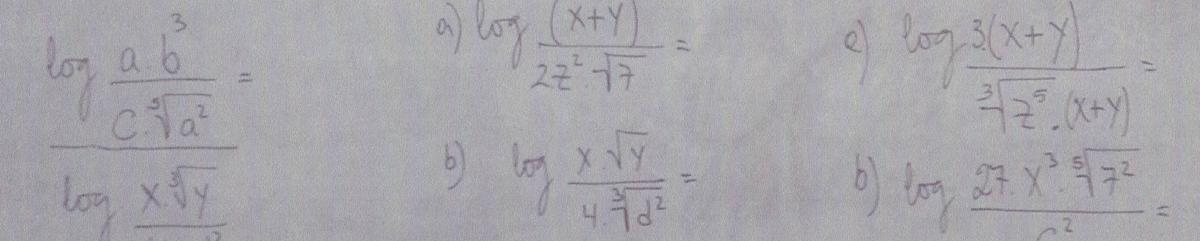 log a.b³ / c.⁵√a² =
log x.³√y
a) log (x+y) / 2z².√7 =
b) log x.√y / 4.³√d² =
e) log 3.(x+y) / ³√z⁵.(x+y) =
b) log 27.x³.⁵√7² / c² =